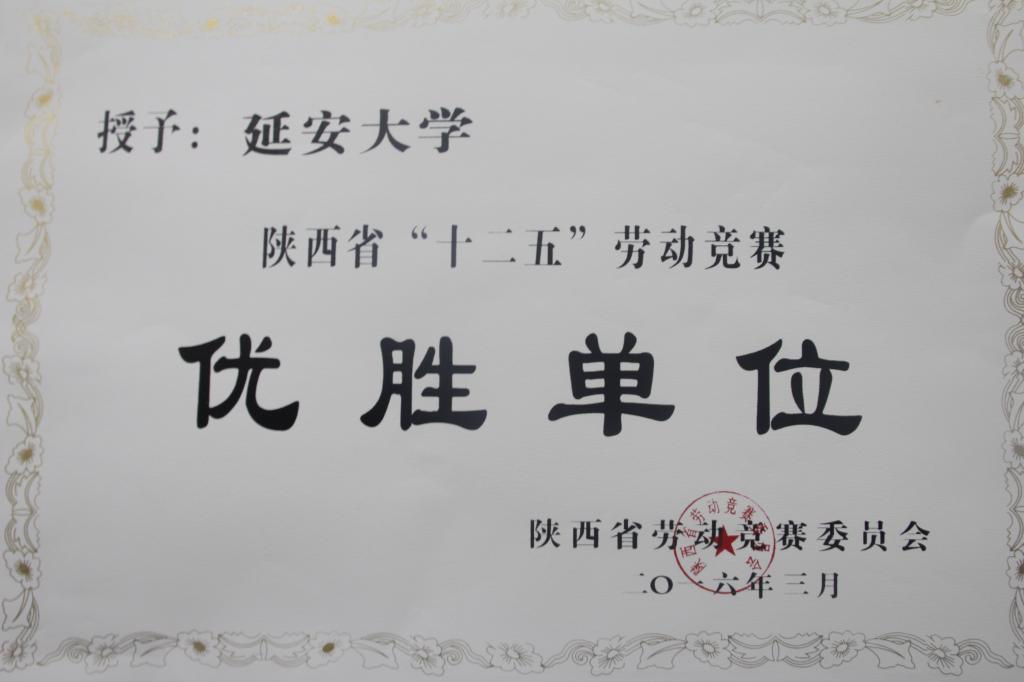 授予：延安大学
陕西省“十二五”劳动竞赛
优胜单位
陕西省劳动竞赛委员会
二〇一六年三月
陕西省劳动竞赛委员会